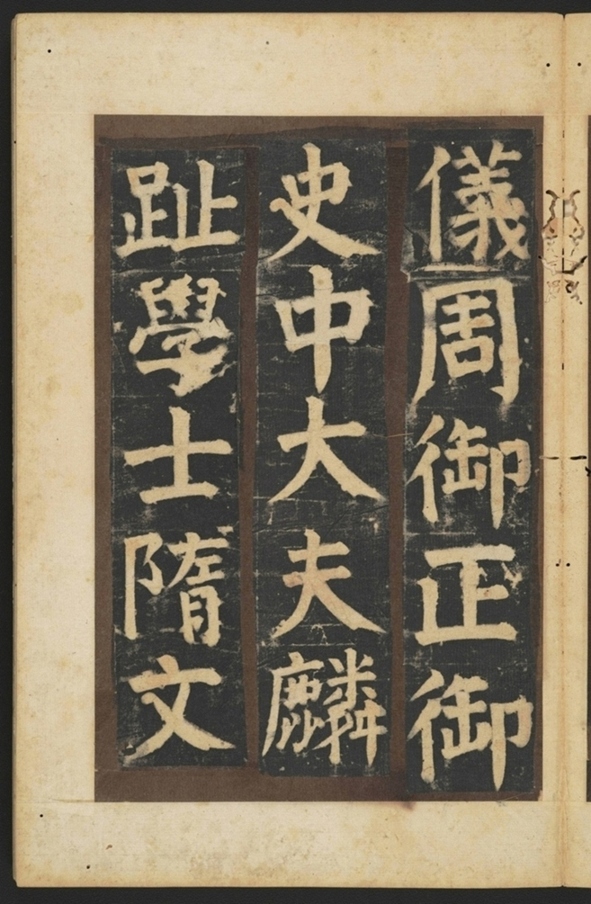 儀周御正御
史中大夫麟
趾學士隋文